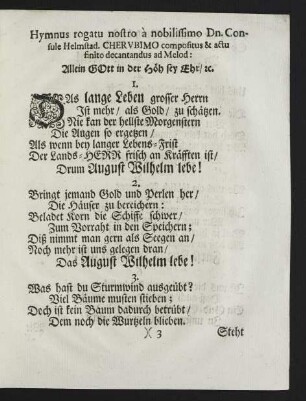 Hymnus rogatu nostro à nobilissimo Dn. Con-
sule Helmstad. CHERVBIMO compositus & actu
finito decantandus ad Melod:
Allein GOtt in der Höh sey Ehr/ ꝛc.
1.
DAs lange Leben grosser Herrn
Ist mehr/ als Gold/ zu schätzen.
Nie kan der hellste Morgenstern
Die Augen so ergetzen/
Als wenn bey langer Lebens-Frist
Der Lands-HERR frisch an Kräfften ist/
Drum August Wilhelm lebe!
2.
Bringt jemand Gold und Perlen her/
Die Häuser zu bereichern:
Beladet Korn die Schiffe schwer/
Zum Vorraht in den Speichern;
Diß nimmt man gern als Seegen an/
Noch mehr ist uns gelegen dran/
Das August Wilhelm lebe!
3.
Was hast du Sturmwind ausgeübt?
Viel Bäume musten stieben;
Doch ist kein Baum dadurch betrübt/
Dem noch die Wurtzeln blieben.
)( 3 Steht